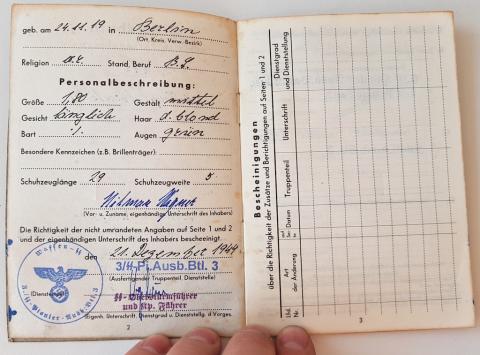 geb. am 24.11.19 in Berlin
(Ort, Kreis, Verw.-Bezirk)
Religion Stand, Beruf
Personalbeschreibung:
Größe 1,80 Gestalt mittel
Gesicht länglich Haar d. blond
Bart ./. Augen grün
Besondere Kennzeichen (z.B. Brillenträger):
Schuhzeuglänge 29 Schuhzeugweite 5
(Vor- u. Zuname, eigenhändige Unterschrift des Inhabers)
Die Richtigkeit der nicht umrandeten Angaben auf Seite 1 und 2
und der eigenhändigen Unterschrift des Inhabers bescheinigt.
den 21. Dezember 1944
3/SS-Pi.Ausb.Btl. 3
(Ausfertigender Truppenteil, Dienststelle)
Waffen-SS
(Dienststempel)
SS-Obersturmführer
und Kp. Führer
(Eigenh. Unterschrift, Dienstgrad u. Dienststellg. d. Vorges.)
2
Bescheinigungen
über die Richtigkeit der Zusätze und Berichtigungen auf Seiten 1 und 2
Lfd. Nr.
Art der Änderung
Datum
Truppenteil
Unterschrift
Dienstgrad und Dienststellung
3